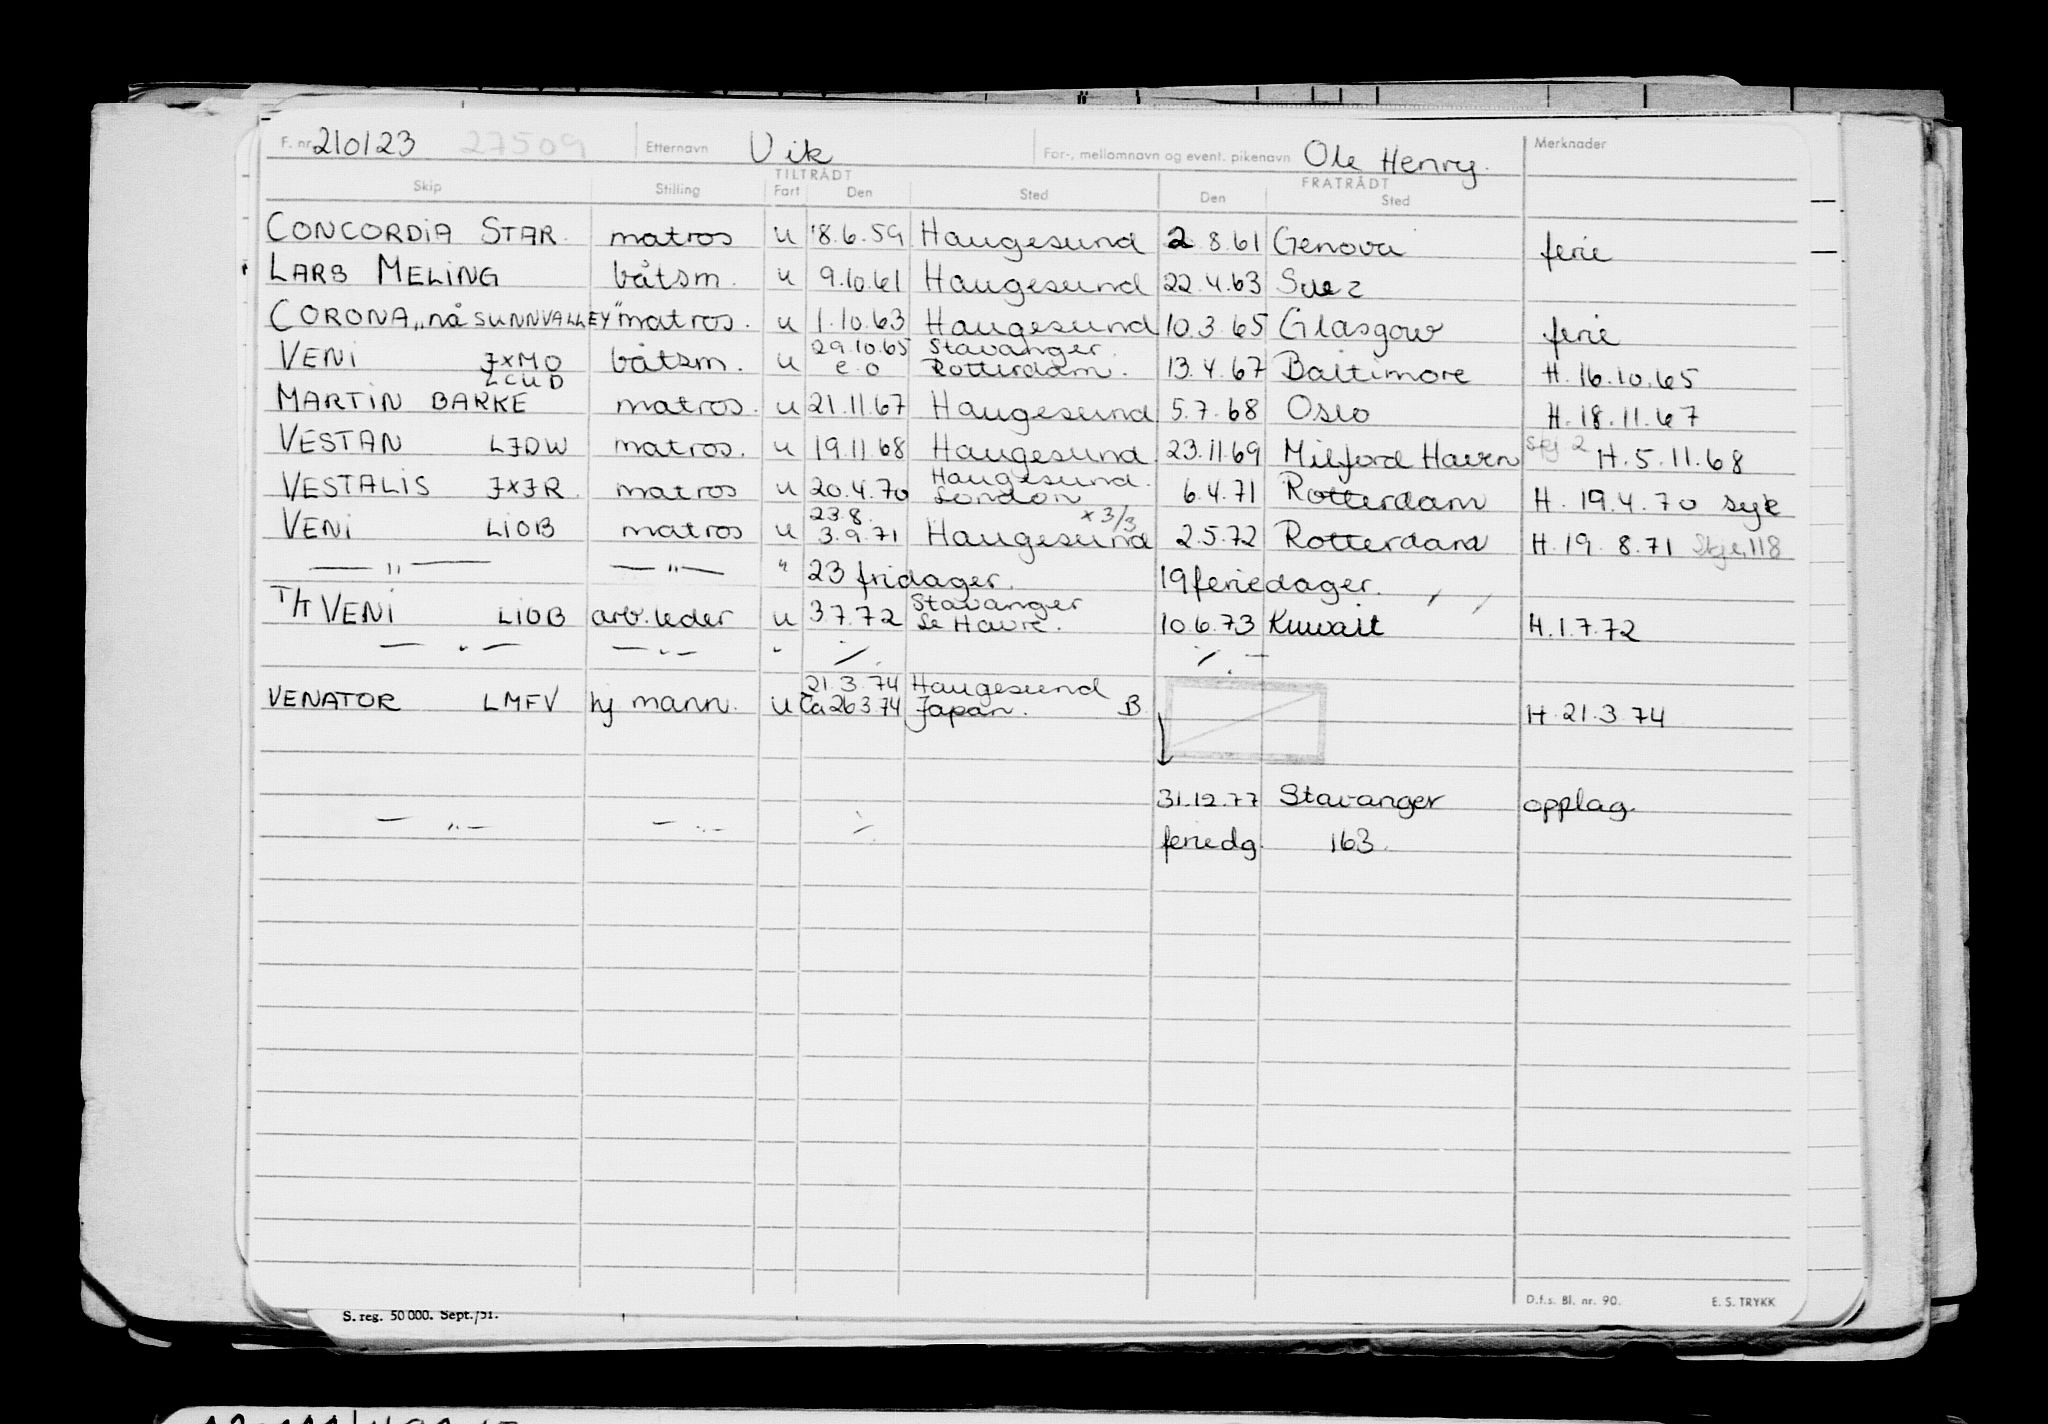 F. nr. 210123 27509 Etternavn Vik For-, mellomnavn og event. pikenavn Ole Henry. Merknader
TILTRÅDT FRATRÅDT
Skip Stilling Fart Den Sted Den Sted
CONCORDIA STAR. matros u 18.6.59 Haugesund 2.8.61 Genova ferie
LARS MELING båtsm. u 9.10.61 Haugesund 22.4.63 Suez
CORONA „nå SUNNVALLEY" matros. u 1.10.63 Haugesund 10.3.65 Glasgow ferie
29.10.65 Stavanger.
VENI JXMO båtsm. u e.o Rotterdam. 13.4.67 Baltimore H. 16.10.65
LCUD
MARTIN BAKKE matros. u 21.11.67 Haugesund 5.7.68 Oslo H. 18.11.67
VESTAN LJDW matros. u 19.11.68 Haugesund. 23.11.69 Milford Haven H. 5.11.68
Haugesund.
VESTALIS JXJR matros u 20.4.70 London 6.4.71 Rotterdam H. 19.4.70 syk
23.8. x 3/3
VENI LIOB matros u 3.9.71 Haugesund 2.5.72 Rotterdam H. 19.8.71
— „ — — „ — " 23 fridager. 19 feriedager.
Stavanger
T/T VENI LIOB arb.leder u 3.7.72 Le Havre. 10.6.73 Kuwait H.1.7.72
— „ — — „ — " ⁒ ⁒
21.3.74 Haugesund
VENATOR LMFV hj mann. u Ca 26 3 74 Japan. B H. 21.3.74
31.12.77 Stavanger opplag.
— „ — — „ — ⁒
feriedg. 163.
D.f.s. Bl. nr. 90. E. S. TRYKK
S. reg. 50 000. Sept./51.